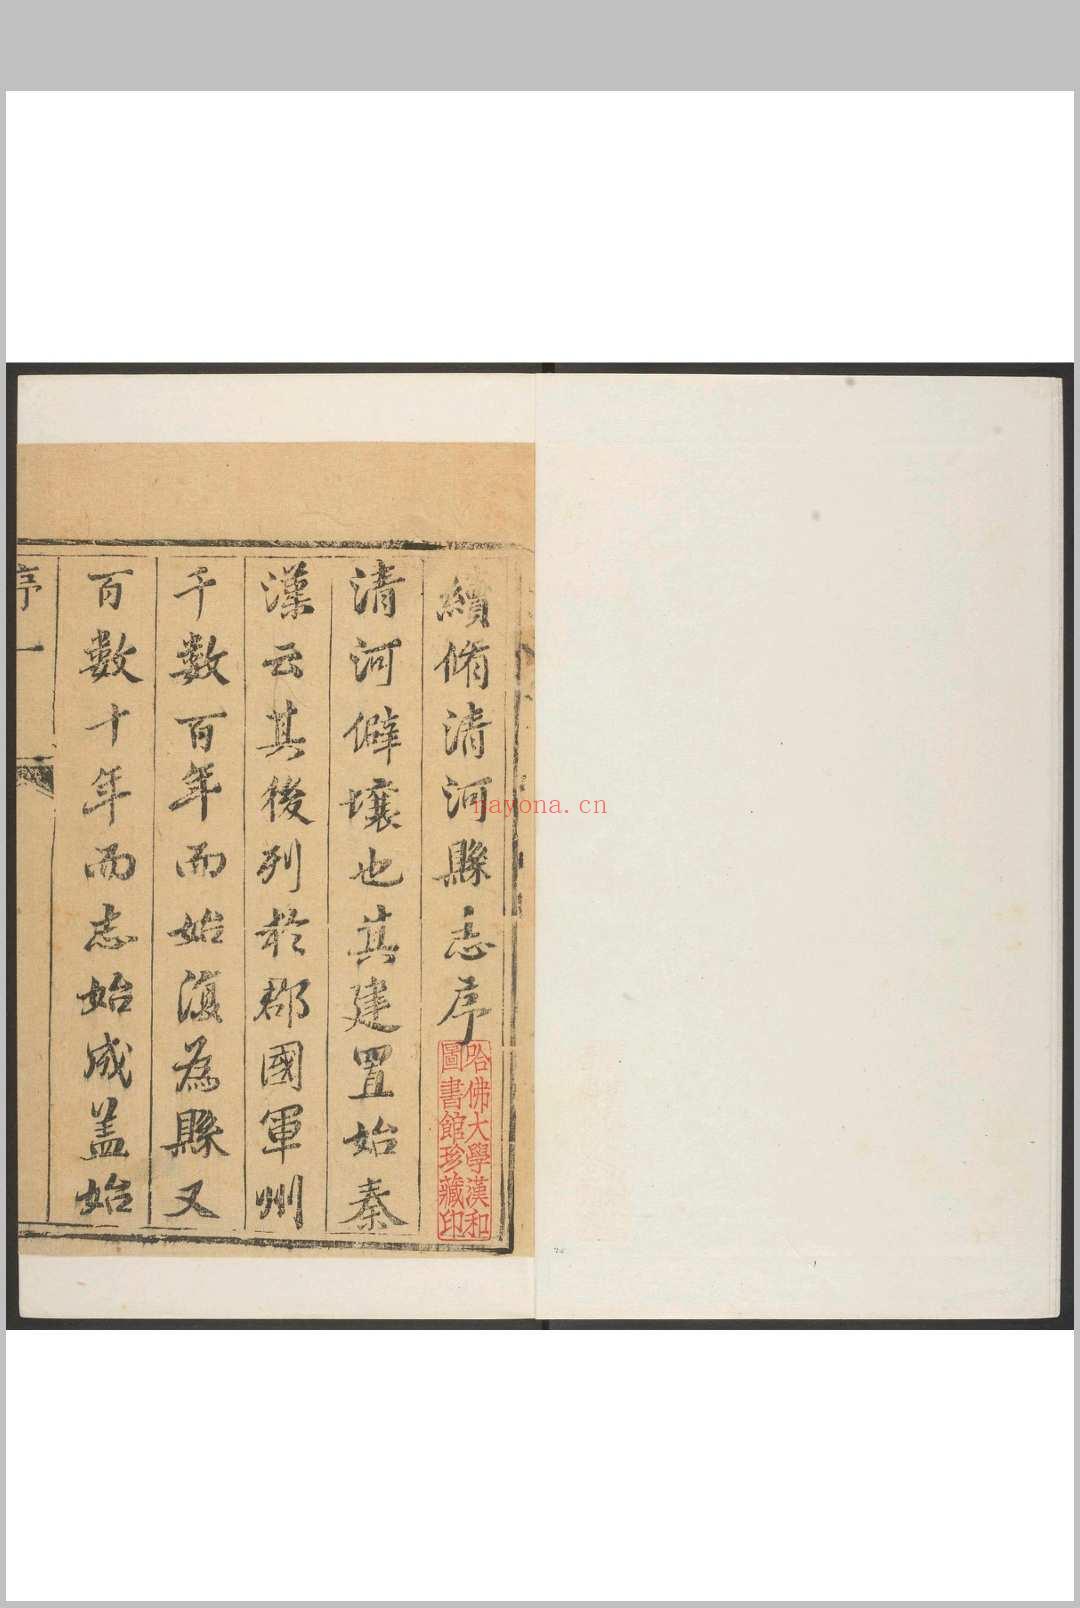 續脩清河縣志序
清河僻壤也其建置始秦
漢云其後列於郡國軍州
千數百年而始復為縣又
百數十年而志始成盖始
序 一
哈佛大學漢和
圖書館珍藏印
nayona.cn